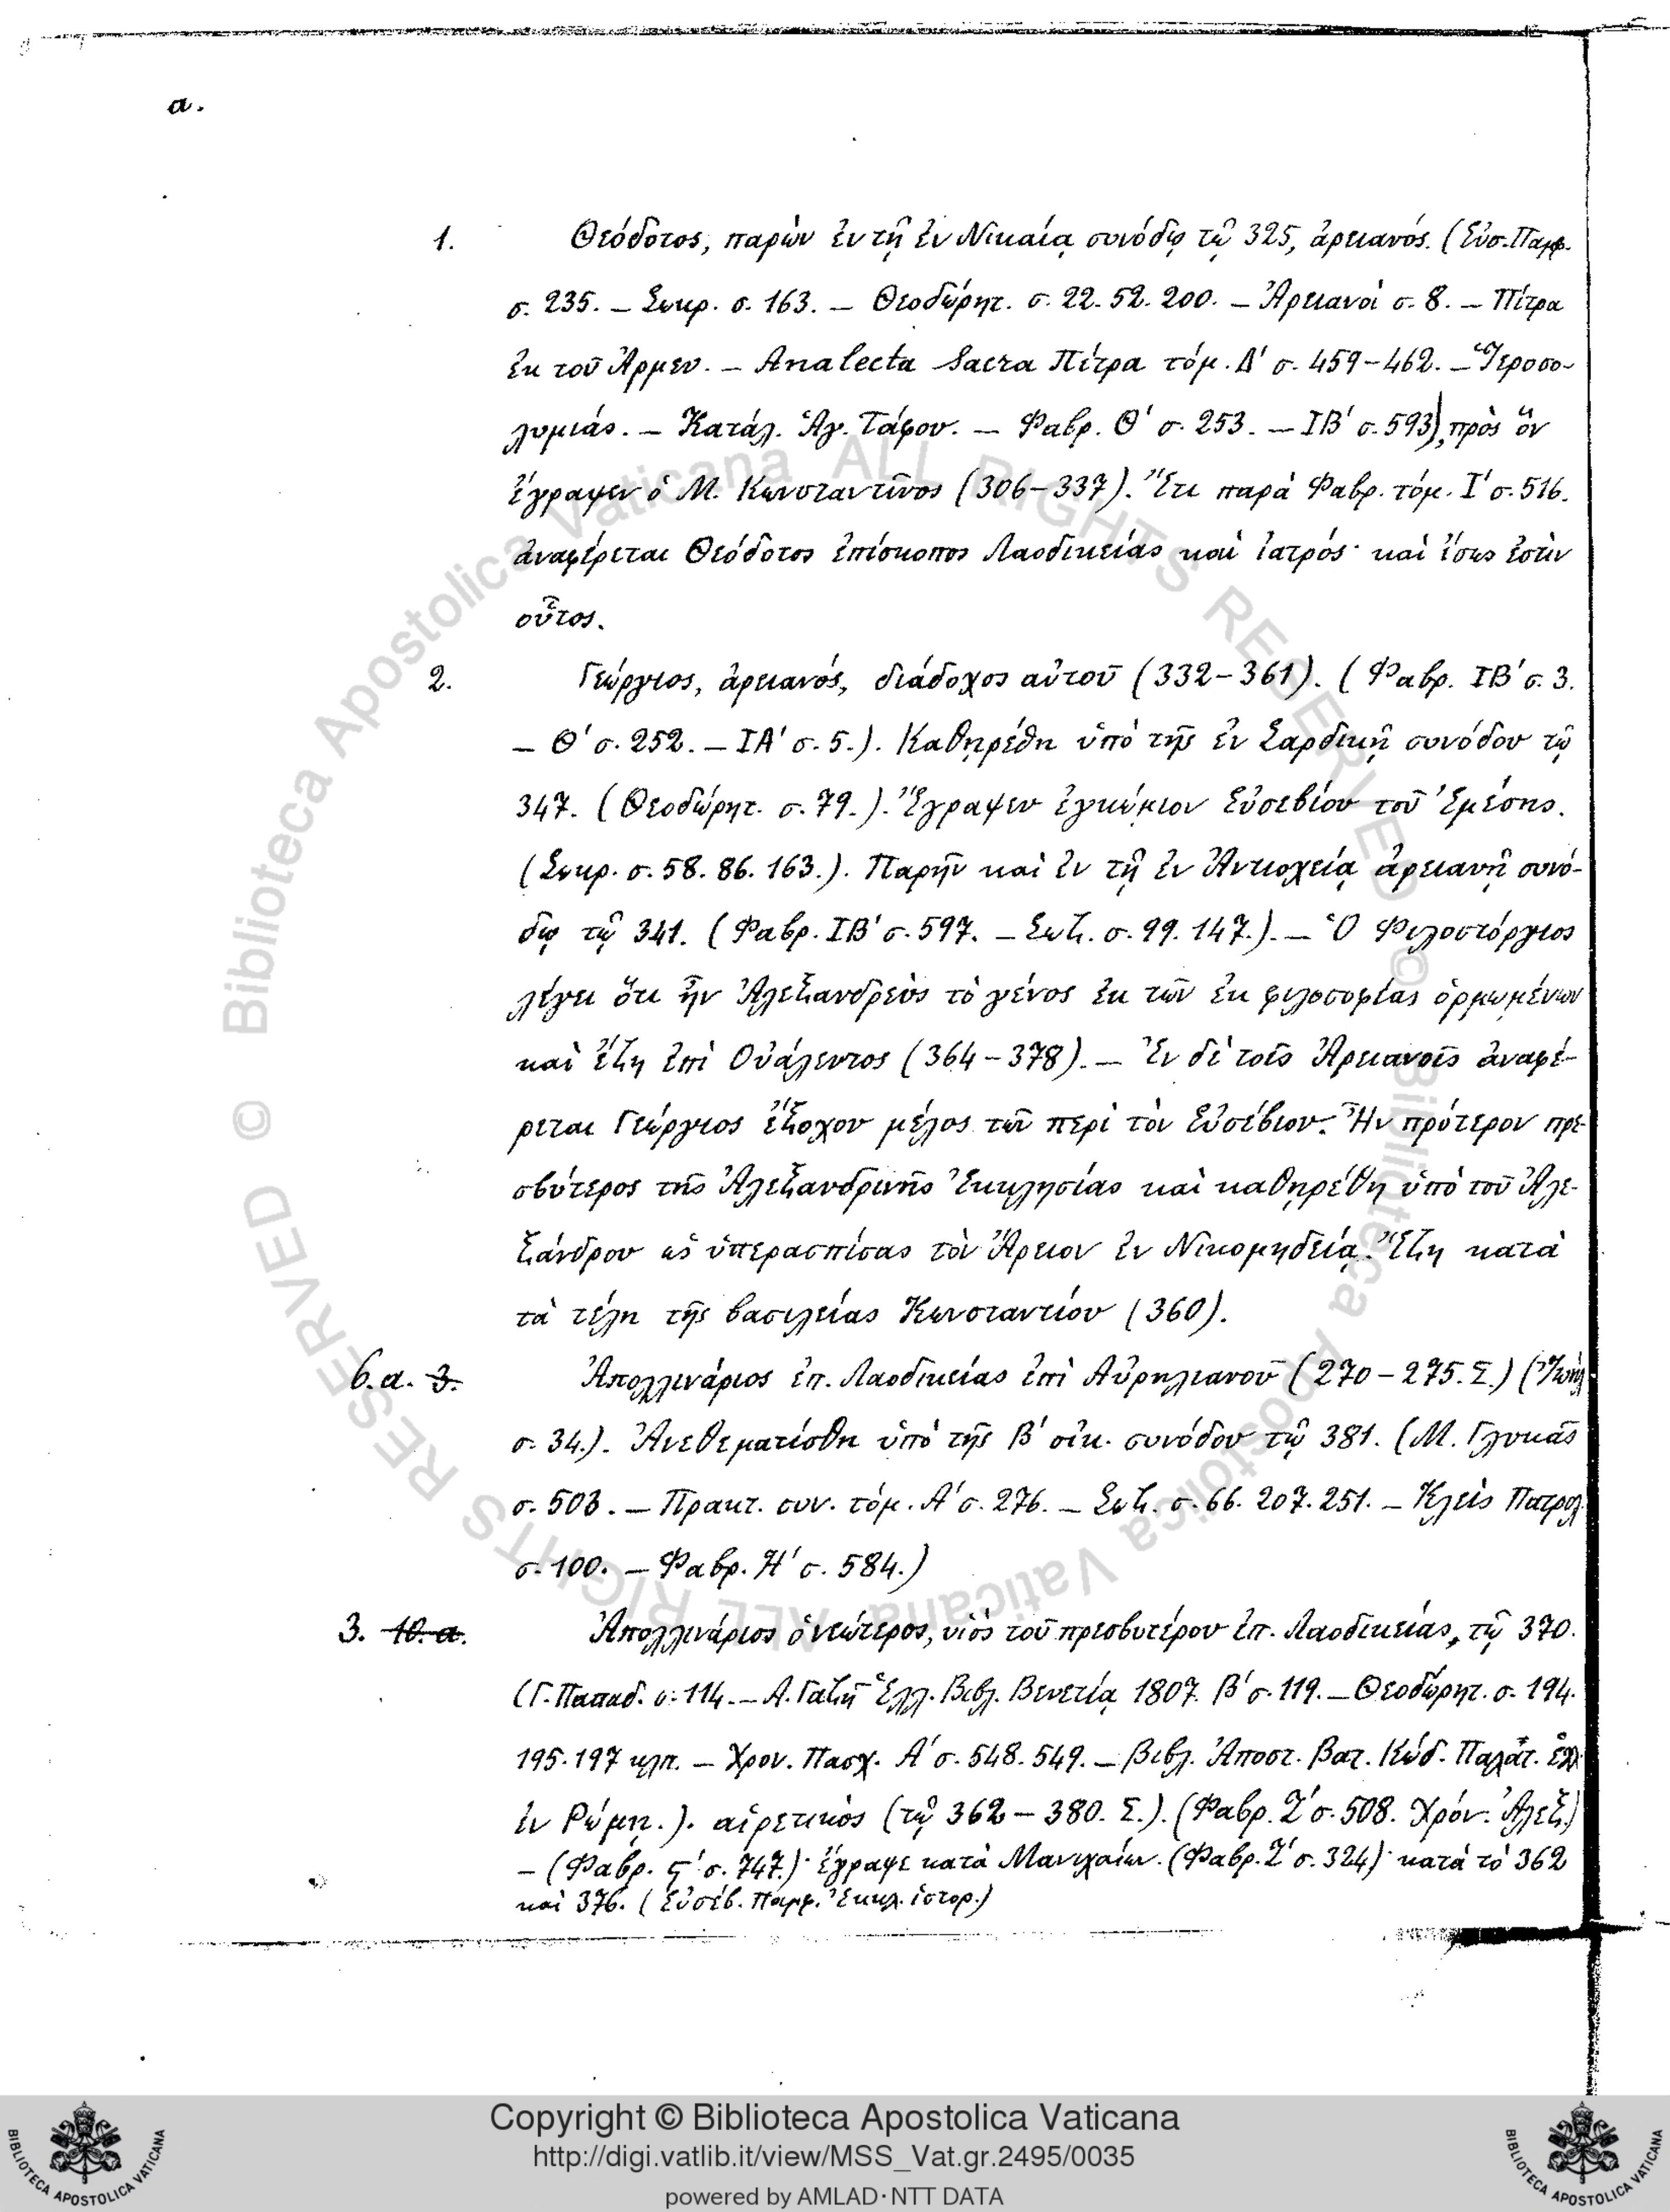 a.
1. Θεόδοτος, παρὼν ἐν τῇ ἐν Νικαίᾳ συνόδῳ τῷ 325, ἀρειανός. (Εὐσ. Παμφ.
σ. 235. – Σωκρ. σ. 163. – Θεοδώρητ. σ. 22. 52. 200. – Ἀρειανοὶ σ. 8. – Πίτρα
ἐκ τοῦ Ἀρμεν. – Analecta Sacra Πίτρα τόμ. Δ' σ. 459–462. – Ἱεροσο-
λυμιάς. – Κατάλ. Ἁγ. Τάφου. – Φαβρ. Θ' σ. 253. – ΙΒ' σ. 593), πρὸς ὃν
ἔγραψεν ὁ Μ. Κωνσταντῖνος (306–337). Ἔτι παρὰ Φαβρ. τόμ. Ι' σ. 516.
ἀναφέρεται Θεόδοτος ἐπίσκοπος Λαοδικείας καὶ ἰατρός· καὶ ἴσως ἐστὶν
οὗτος.
2. Γεώργιος, ἀρειανός, διάδοχος αὐτοῦ (332–361). (Φαβρ. ΙΒ' σ. 3.
– Θ' σ. 252. – ΙΑ' σ. 5.). Καθῃρέθη ὑπὸ τῆς ἐν Σαρδικῇ συνόδου τῷ
347. (Θεοδώρητ. σ. 79.). Ἔγραψεν ἐγκώμιον Εὐσεβίου τοῦ Ἐμέσης.
(Σωκρ. σ. 58. 86. 163.). Παρῆν καὶ ἐν τῇ ἐν Ἀντιοχείᾳ ἀρειανῇ συνό-
δῳ τῷ 341. (Φαβρ. ΙΒ' σ. 597. – Σωζ. σ. 99. 147.). – Ὁ Φιλοστόργιος
λέγει ὅτι ἦν Ἀλεξανδρεὺς τὸ γένος ἐκ τῶν ἐκ φιλοσοφίας ὁρμωμένων
καὶ ἔζη ἐπὶ Οὐάλεντος (364–378). – Ἐν δὲ τοῖς Ἀρειανοῖς ἀναφέ-
ρεται Γεώργιος ἔξοχον μέλος τῶν περὶ τὸν Εὐσέβιον. Ἦν πρότερον πρε-
σβύτερος τῆς Ἀλεξανδρινῆς Ἐκκλησίας καὶ καθῃρέθη ὑπὸ τοῦ Ἀλε-
ξάνδρου ὡς ὑπερασπίσας τὸν Ἄρειον ἐν Νικομηδείᾳ. Ἔζη κατὰ
τὰ τέλη τῆς βασιλείας Κωνσταντίου (360).
6.a. 3. Ἀπολλινάριος ἐπ. Λαοδικείας ἐπὶ Αὐρηλιανοῦ (270–275. Σ.)
σ. 34.). Ἀνεθεματίσθη ὑπὸ τῆς Β' οἰκ. συνόδου τῷ 381. (Μ. Γλυκᾶς
σ. 503. – Πρακτ. συν. τόμ. Α' σ. 276. – Σωζ. σ. 66. 207. 251. – Κλεὶς Πατρολ
σ. 100. – Φαβρ. Η' σ. 584.)
3. 10. a. Ἀπολλινάριος ὁ νεώτερος, υἱὸς τοῦ πρεσβυτέρου ἐπ. Λαοδικείας, τῷ 370.
(Γ. Παπαδ. σ. 114. – Α. Γαζῆ Ἑλλ. Βιβλ. Βενετίᾳ 1807. Β' σ. 119. – Θεοδώρητ. σ. 194.
195. 197 κλπ. – Χρον. Πασχ. Α' σ. 548. 549. – Βιβλ. Ἀποστ. Βατ. Κώδ. Παλάτ. ἑλλ
ἐν Ρώμῃ.). αἱρετικὸς (τῷ 362–380. Σ.). (Φαβρ. Ζ' σ. 508. Χρόν. Ἀλεξ.)
– (Φαβρ. ς' σ. 747.)· ἔγραψε κατὰ Μανιχαίων. (Φαβρ. Ζ' σ. 324)· κατὰ τὸ 362
καὶ 376. (Εὐσέβ. Παμφ. Ἐκκλ. ἱστορ.)
© Biblioteca Apostolica Vaticana ALL RIGHTS RESERVED
© Biblioteca Apostolica Vaticana ALL RIGHTS RESERVED
Copyright © Biblioteca Apostolica Vaticana
http://digi.vatlib.it/view/MSS_Vat.gr.2495/0035
powered by AMLAD·NTT DATA
BIBLIOTECA APOSTOLICA VATICANA
BIBLIOTECA APOSTOLICA VATICANA